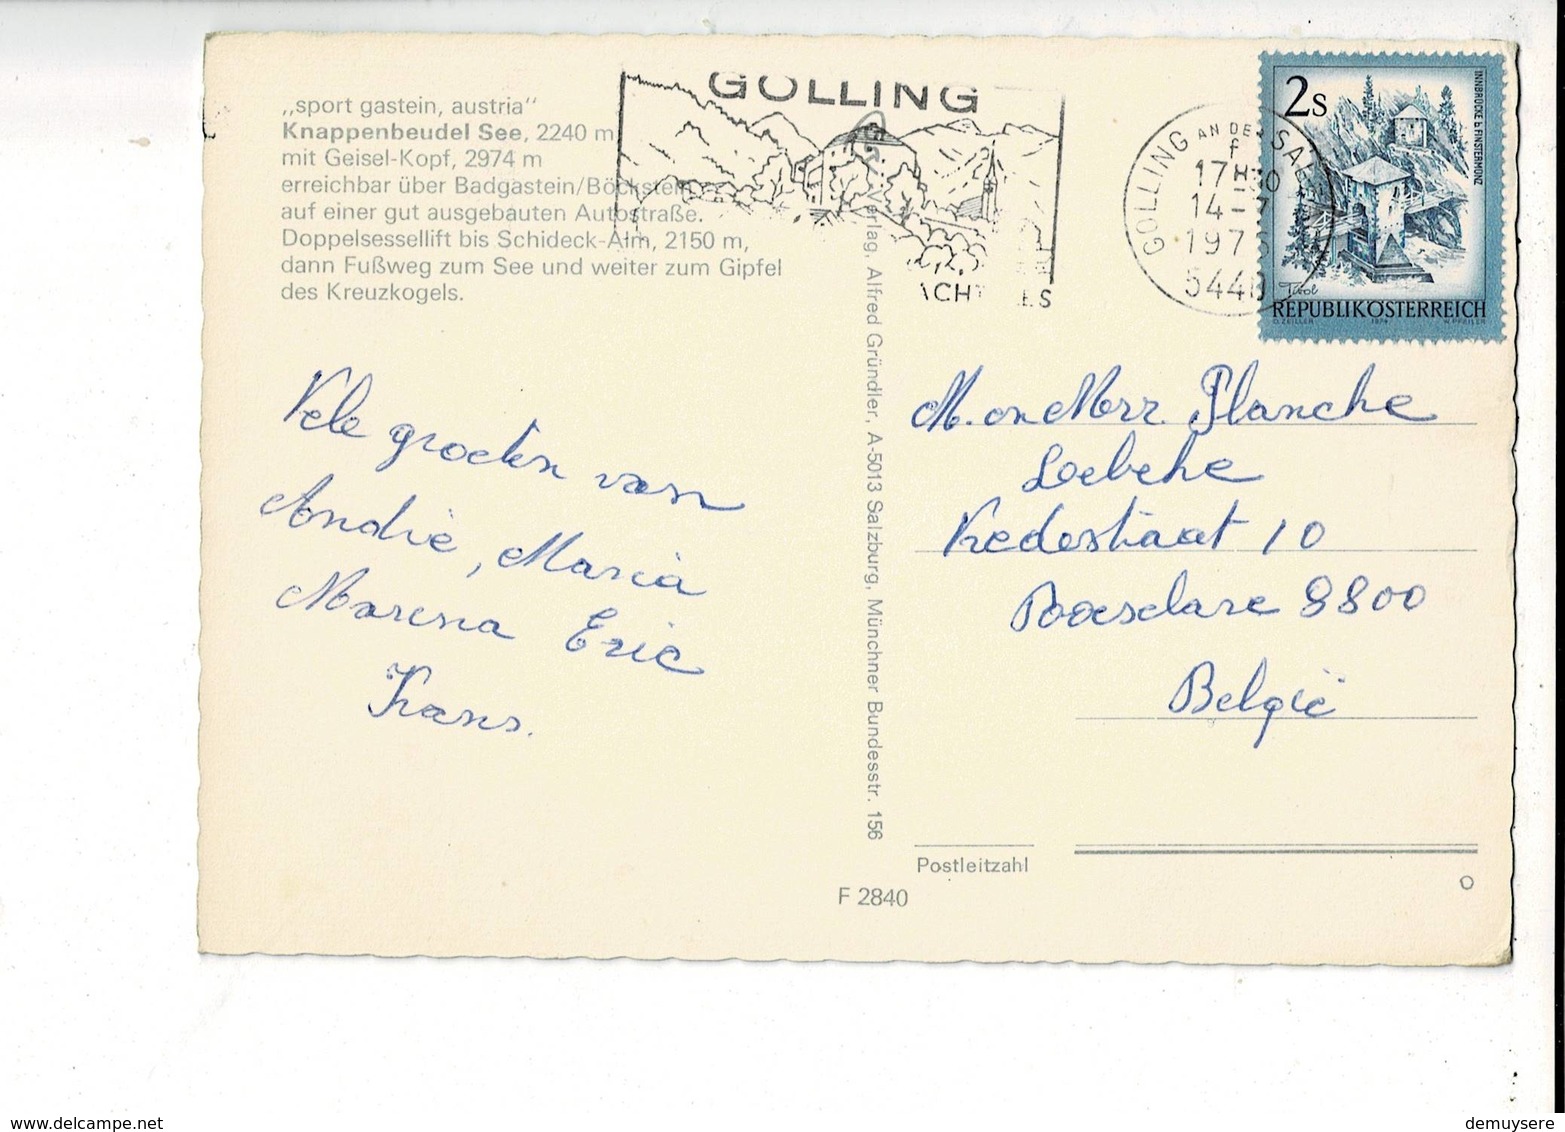 „sport gastein, austria"
Knappenbeudel See, 2240 m
mit Geisel-Kopf, 2974 m
erreichbar über Badgastein/Böckstein
auf einer gut ausgebauten Autostraße.
Doppelsessellift bis Schideck-Alm, 2150 m,
dann Fußweg zum See und weiter zum Gipfel
des Kreuzkogels.
Vele groeten van
André, Maria
Marina Eric
Frans.
Verlag, Alfred Gründler, A-5013 Salzburg, Münchner Bundesstr. 156
F 2840
GOLLING
GOLLING AN DER SAL
f
17H-30
14-7
197
5440
2s
INNBRÜCKE b FINSTERMÜNZ
Tirol
REPUBLIK ÖSTERREICH
O. ZEILLER 1974 W. PFEILER
M. en Mevr. Planche
Loebeke
10
8800
België
Postleitzahl
www.delcampe.net
demuysere